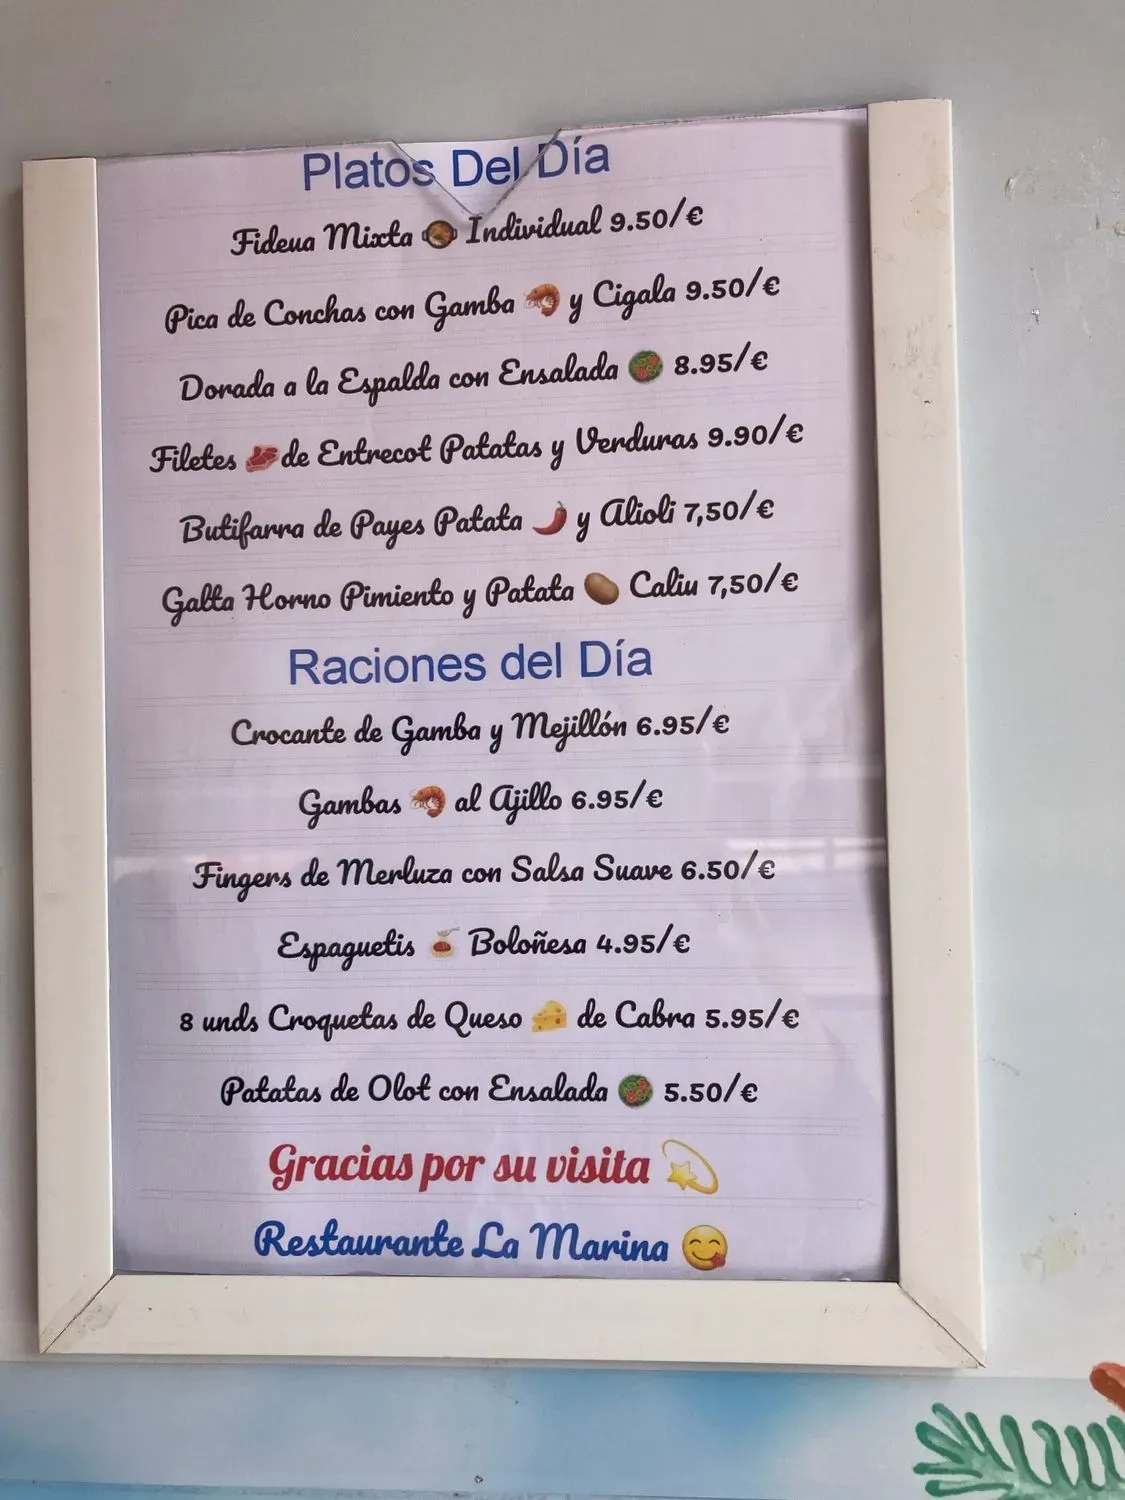 Platos Del Día
Fideua Mixta 🥘 Individual 9.50/€
Pica de Conchas con Gamba 🦐 y Cigala 9.50/€
Dorada a la Espalda con Ensalada 🥗 8.95/€
Filetes 🥩 de Entrecot Patatas y Verduras 9.90/€
Butifarra de Payes Patata 🌶️ y Alioli 7,50/€
Galta Horno Pimiento y Patata 🥔 Caliu 7,50/€
Raciones del Día
Crocante de Gamba y Mejillón 6.95/€
Gambas 🦐 al Ajillo 6.95/€
Fingers de Merluza con Salsa Suave 6.50/€
Espaguetis 🍝 Boloñesa 4.95/€
8 unds Croquetas de Queso 🧀 de Cabra 5.95/€
Patatas de Olot con Ensalada 🥗 5.50/€
Gracias por su visita 💫
Restaurante La Marina 😋